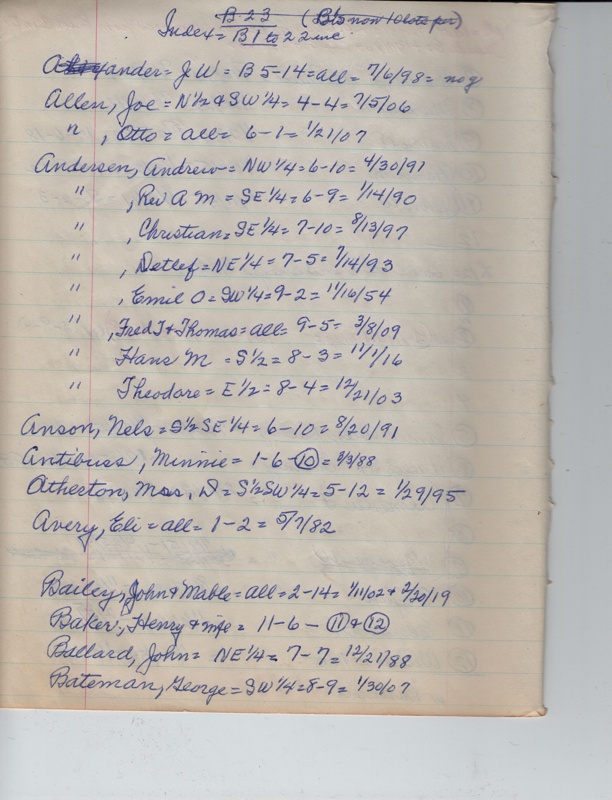 B-23 (B15 now 10 lots per)
Index = B1 to 22 inc
Alexander = J.W = B 5-14 = all = 7/6/98 = no g
Allen, Joe = N½ & SW¼ = 4-4 = 7/5/06
" , Otto = all = 6-1 = 1/21/07
Andersen, Andrew = NW¼ = 6-10 = 4/30/91
" , Rev A M = SE¼ = 6-9 = 1/14/90
" , Christian = SE¼ = 7-10 = 8/13/97
" , Detlef = NE¼ = 7-5 = 7/14/93
" , Emil O = SW¼ = 9-2 = 11/16/54
" , Fred T & Thomas = all = 9-5 = 3/8/09
" Hans M = S½ = 8-3 = 11/1/16
" Theodore = E½ = 8-4 = 12/21/03
Anson, Nels = S½ SE¼ = 6-10 = 8/20/91
Antibuss, Minnie = 1-6-10 = 3/3/88
Atherton, Mrs, D = S½ SW¼ = 5-12 = 1/29/95
Avery, Eli = all = 1-2 = 5/7/82
Bailey, John & Mable = all = 2-14 = 1/11/02 & 2/20/19
Baker, Henry & wife = 11-6-11 & 12
Ballard, John = NE¼ = 7-7 = 12/21/88
Bateman, George = SW¼ = 8-9 = 1/30/07